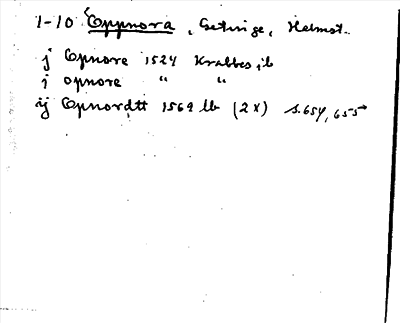 1-10 Eppnora, Getinge, Halmst.
j Epnore 1524 Krabbes jb
j opnore " "
ij Epnordtt 1569 lb (2x) s. 654, 655